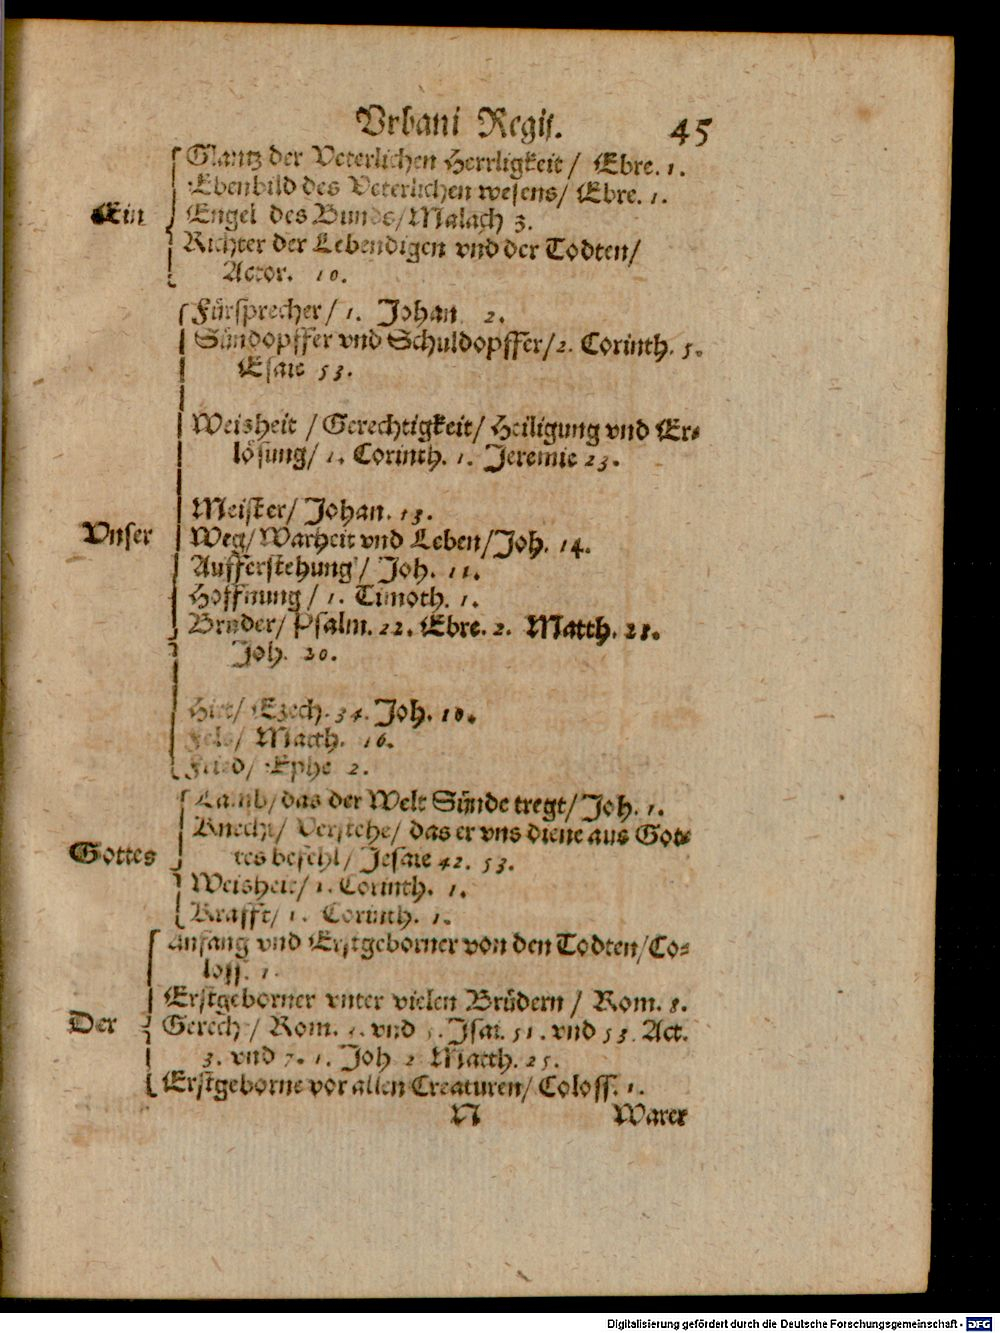 Vrbani Regij. 45
Glantz der Veterlichen Herrligkeit / Ebre. 1.
Ebenbild des Veterlichen wesens/ Ebre. 1.
Ein Engel des Bunds/Malach 3.
Richter der Lebendigen vnd der Todten/
Actor. 10.
Fürsprecher/ 1. Johan 2.
Sündopffer vnd Schuldopffer/2. Corinth. 5.
Esaie 53.
Weisheit /Gerechtigkeit/ Heiligung vnd Er-
lösung/ 1. Corinth. 1. Jeremie 23.
Meister/ Johan. 13.
Vnser Weg/Warheit vnd Leben/Joh. 14.
Aufferstehung / Joh. 11.
Hoffnung / 1. Timoth. 1.
Bruder/ Psalm. 22. Ebre. 2. Matth. 28.
Joh. 20.
Hirt/ Ezech. 34. Joh. 10.
Fels/ Matth. 16.
Fried/ Ephe 2.
Lamb/das der Welt Sünde tregt/Joh. 1.
Knecht/ Verstehe/ das er vns diene aus Got-
Gottes tes befehl/ Jesaie 42. 53.
Weisheit/ 1. Corinth. 1.
Krafft/ 1. Corinth. 1.
Anfang vnd Erstgeborner von den Todten/Co-
loss. 1.
Erstgeborner vnter vielen Brüdern / Rom. 8.
Der Gerech/ Rom. vnd Isai. 51. vnd 53. Act.
3. vnd 7. 1. Joh 2 Matth. 25.
Erstgeborne vor allen Creaturen/ Coloss. 1.
N Warer
Digitalisierung gefördert durch die Deutsche Forschungsgemeinschaft - DFG